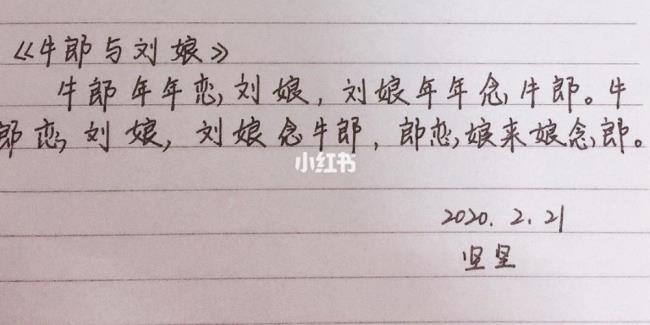 《牛郎与刘娘》
牛郎年年恋刘娘,刘娘年年念牛郎。牛
郎恋刘娘,刘娘念牛郎,郎恋娘来娘念郎。
小红书
2020.2.21
坚坚